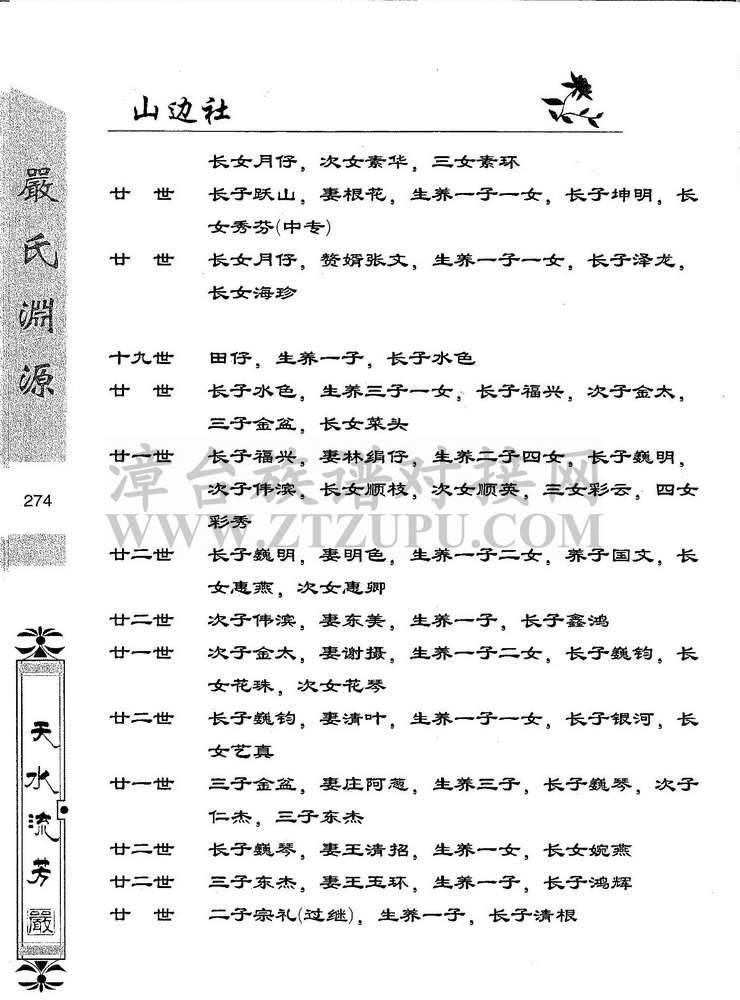 山边社
长女月仔，次女素华，三女素环
廿　世　长子跃山，妻根花，生养一子一女，长子坤明，长
女秀芬(中专)
廿　世　长女月仔，赘婿张文，生养一子一女，长子泽龙，
长女海珍
十九世　田仔，生养一子，长子水色
廿　世　长子水色，生养三子一女，长子福兴，次子金太，
三子金盆，长女菜头
廿一世　长子福兴，妻林绢仔，生养二子四女，长子巍明，
次子伟滨，长女顺枝，次女顺英，三女彩云，四女
彩秀
廿二世　长子巍明，妻明色，生养一子二女，养子国文，长
女惠燕，次女惠卿
廿二世　次子伟滨，妻东美，生养一子，长子鑫鸿
廿一世　次子金太，妻谢摄，生养一子二女，长子巍钧，长
女花珠，次女花琴
廿二世　长子巍钧，妻清叶，生养一子一女，长子银河，长
女艺真
廿一世　三子金盆，妻庄阿葱，生养三子，长子巍琴，次子
仁杰，三子东杰
廿二世　长子巍琴，妻王清招，生养一女，长女婉燕
廿二世　三子东杰，妻王玉环，生养一子，长子鸿辉
廿　世　二子宗礼(过继)，生养一子，长子清根
嚴氏淵源
274
天水流芳
嚴
漳台族谱对接网
WWW.ZTZUPU.COM